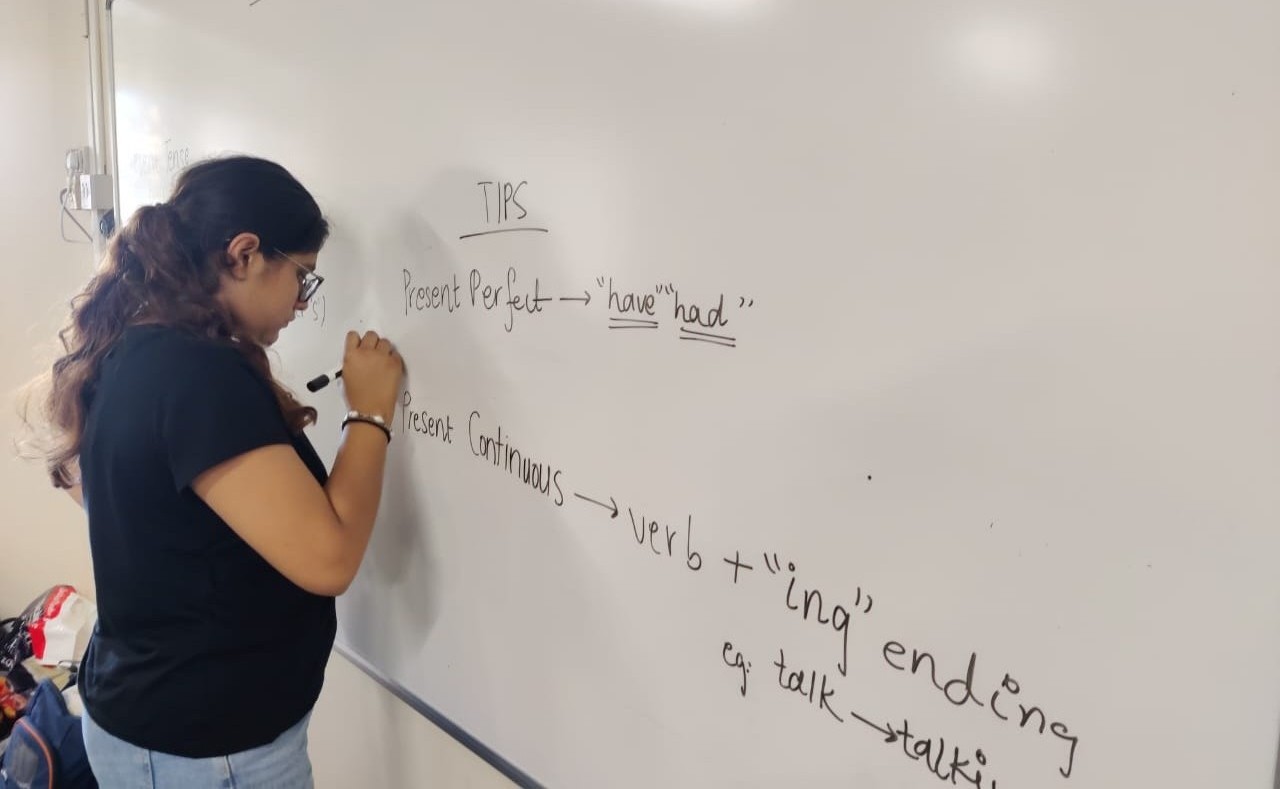 Tense
TIPS
Present Perfect → "have" "had"
s)
Present Continuous → verb + "ing" ending
eg: talk → talki